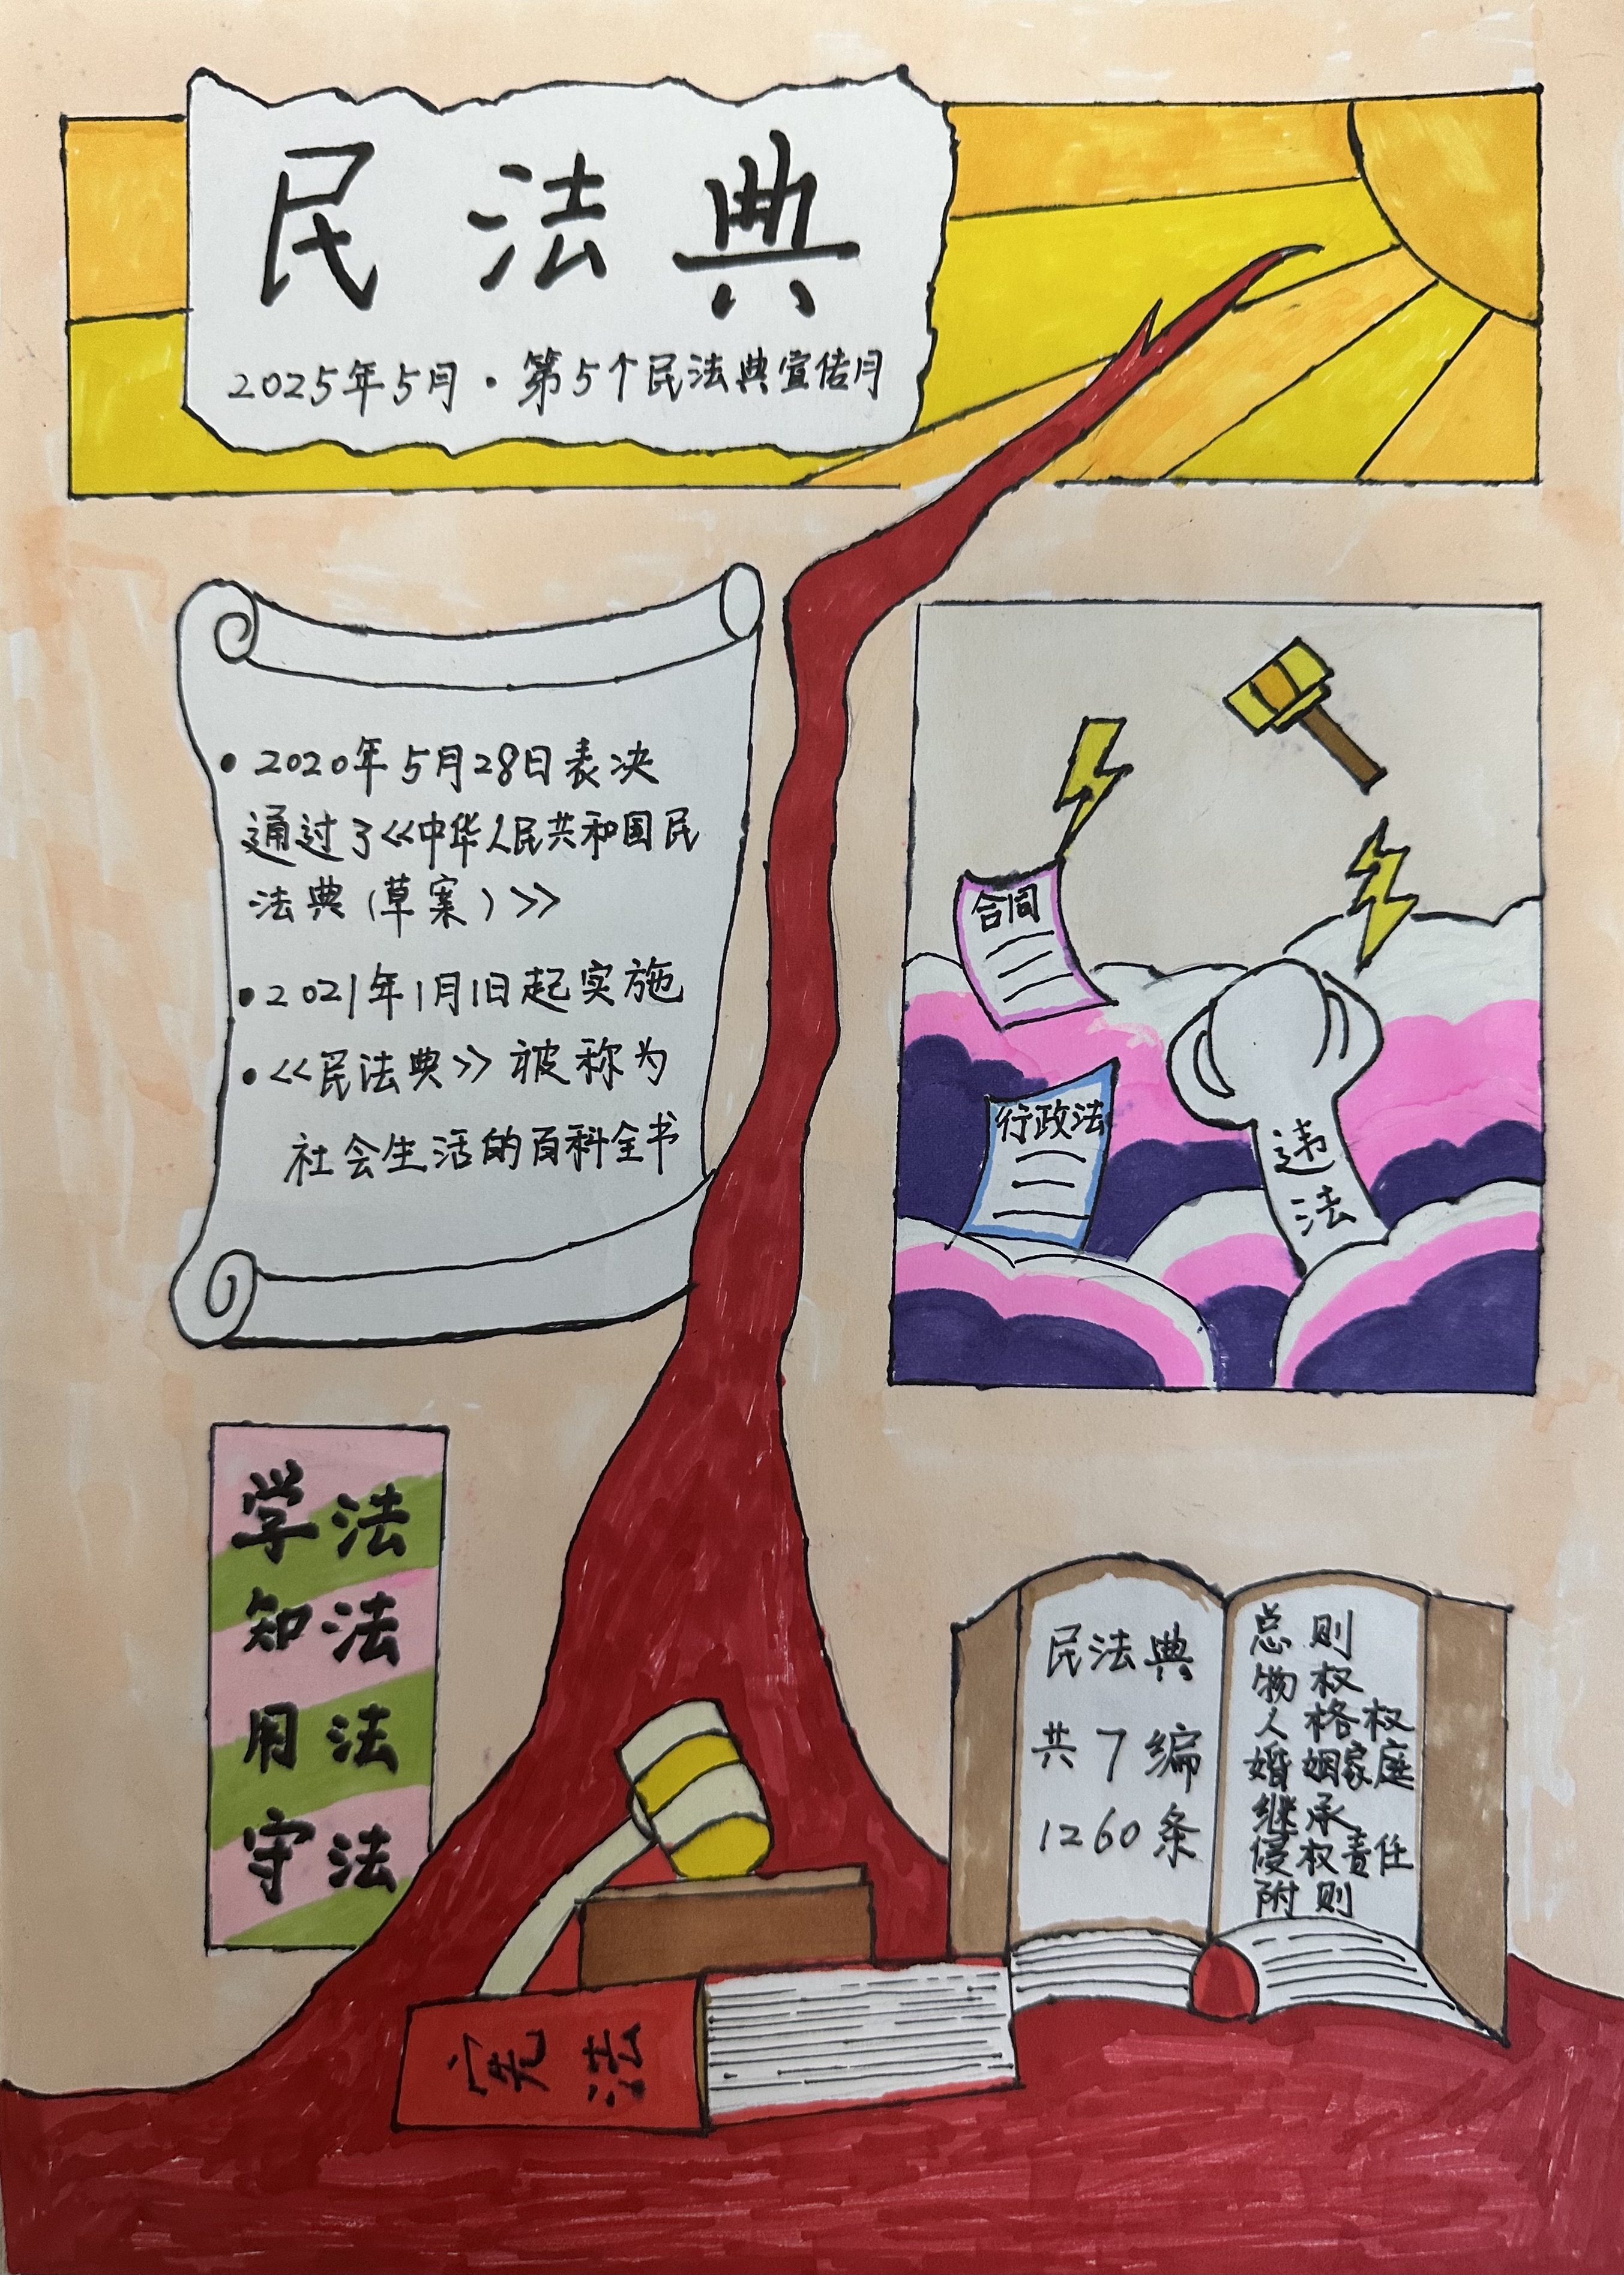 民法典
2025年5月·第5个民法典宣传月
•2020年5月28日表决
通过了<<中华人民共和国民
法典(草案)>>
•2021年1月1日起实施
•<<民法典>>被称为
社会生活的百科全书
合同
行政法
违
法
学法
知法
用法
守法
民法典
共7编
1260条
总则
物权
人格权
婚姻家庭
继承
侵权责任
附则
宪法